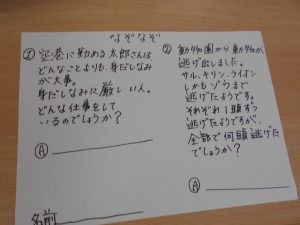 なぞなぞ
① 空港に勤める太郎さんは
どんなことよりも、身だしなみ
が大事。
身だしなみに厳しい人。
どんな仕事をして
いるのでしょうか?
Ⓐ
② 動物園から動物が
逃げ出しました。
サル、キリン、ライオン
しかもゾウまで
逃げたようです。
それぞれ1頭ずつ
逃げたようですが、
全部で何頭逃げた
でしょうか?
Ⓐ
名前